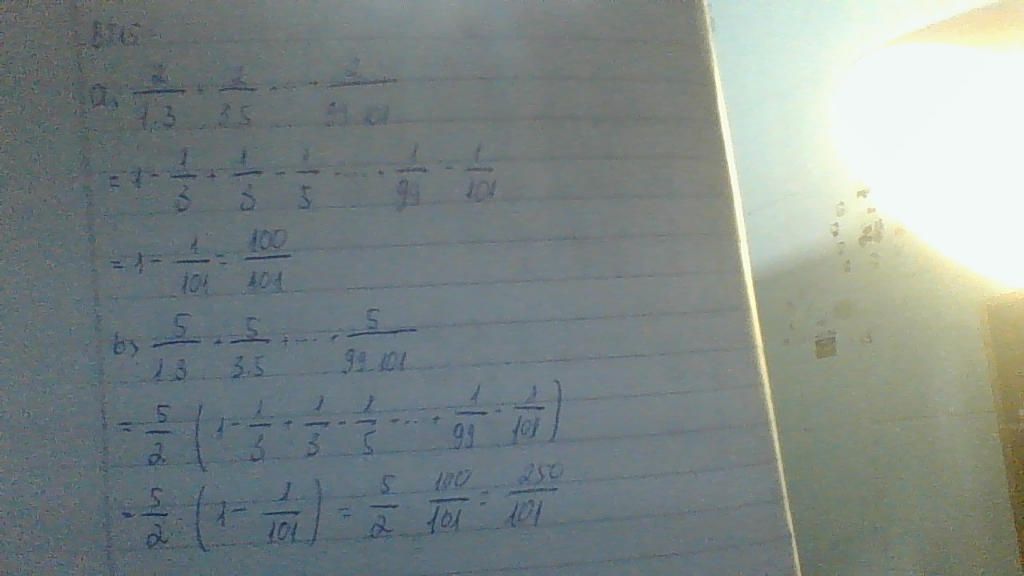 BT15
a, 2/1.3 + 2/3.5 + ... + 2/99.101
= 1 - 1/3 + 1/3 - 1/5 + ... + 1/99 - 1/101
= 1 - 1/101 = 100/101
b, 5/1.3 + 5/3.5 + ... + 5/99.101
= 5/2 (1 - 1/3 + 1/3 - 1/5 + ... + 1/99 - 1/101)
= 5/2 . (1 - 1/101) = 5/2 . 100/101 = 250/101